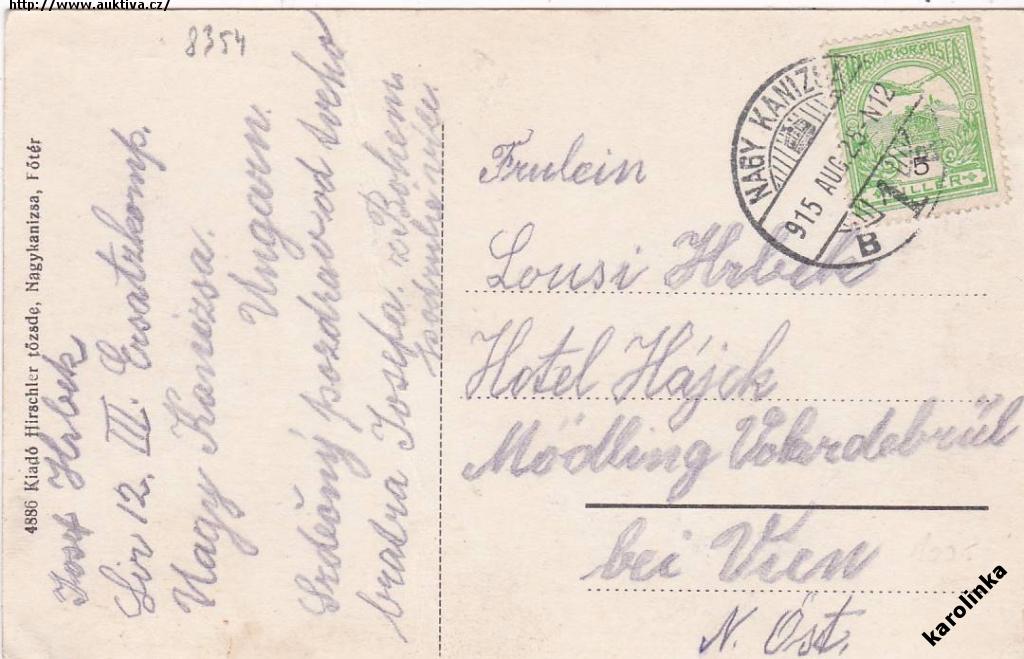 http://www.auktiva.cz/
8354
4886 Kiadó Hirschler tőzsde, Nagykanizsa, Főtér
Josef Hrbek
Lir 12. III. Ersatzkomp.
Nagy Kanizsa.
Ungarn.
Srdečný pozdrav od tveho
bratra Josefa. z Böhem
MAGYAR KIR. POSTA
5
FILLER
NAGY KANIZSA
915 AUG. 28. N12
B
Frulein
Lousi Hrbek
Hotel Hájek
Mödling Vordebrül
bei Vien
N. Öst.
karolinka